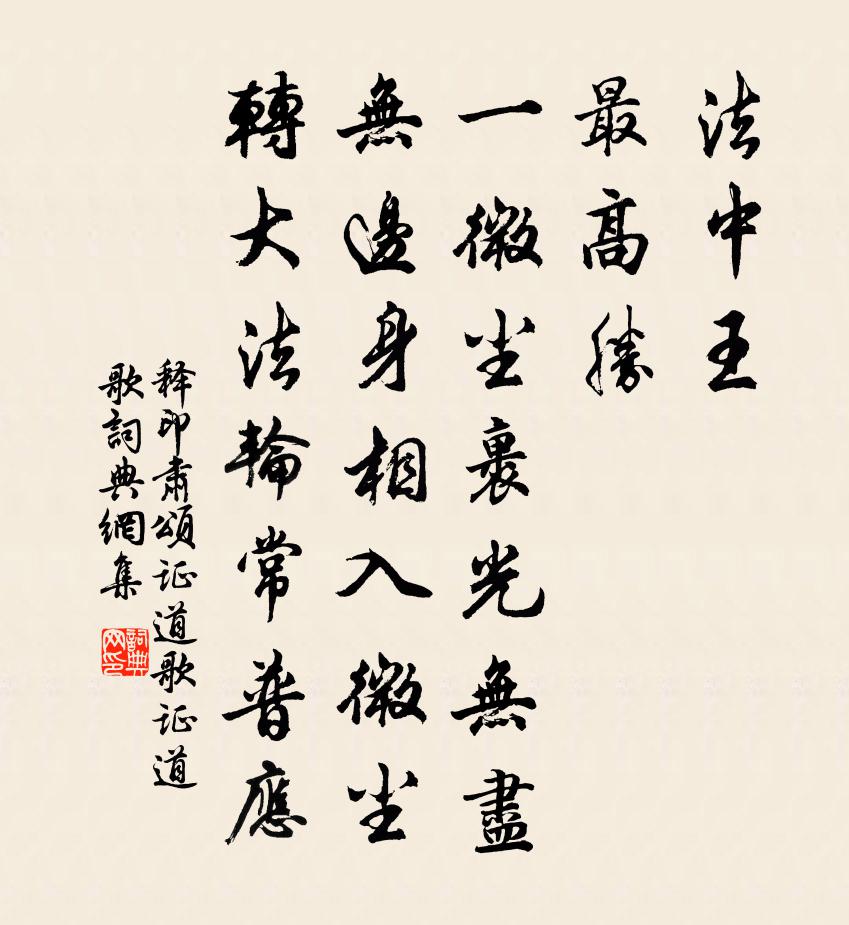 法中王
最高勝
一微尘裏光無盡
無邊身相入微尘
轉大法輪常普應
释印肃頌证道歌证道
歌詞典網集
詞典网印